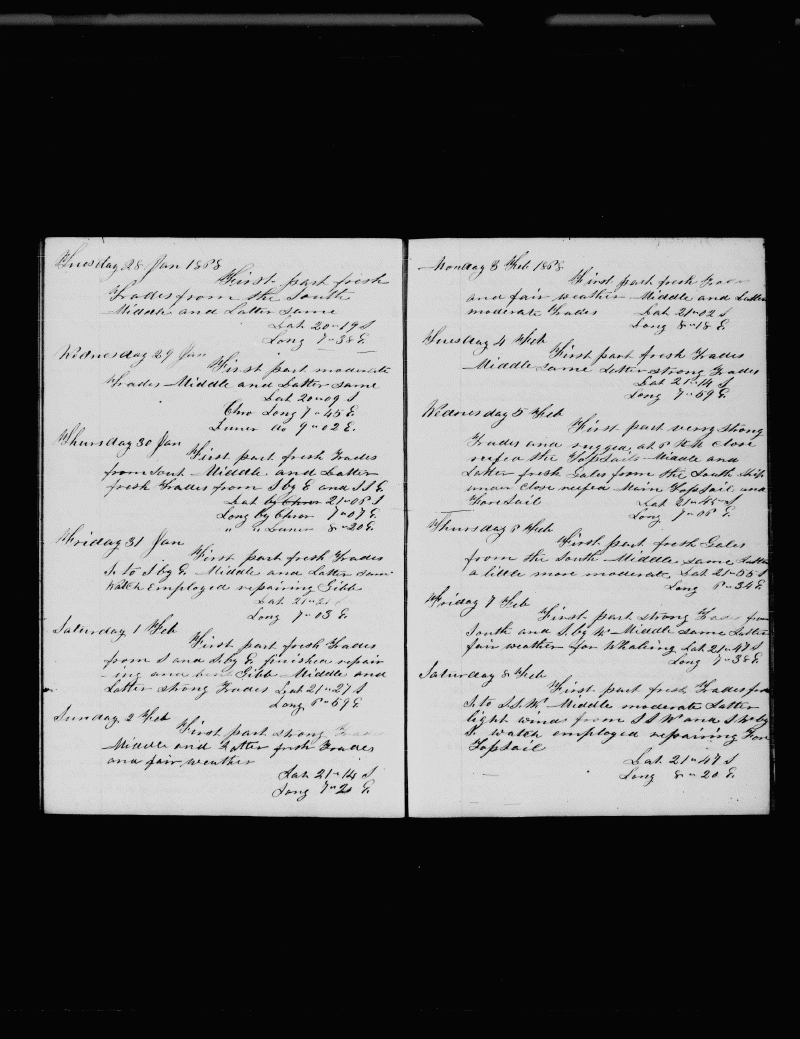 Tuesday 28 Jan 1868
First part fresh
Trades from the South
Middle and Latter same
Lat 20"19 S
Long 7"38 E
Wednesday 29 Jan
First part moderate
Trades Middle and Latter same
Lat 20"09 S
Cho Long 7"45 E
Luner do 9"02 E.
Thursday 30 Jan
First part fresh Trades
from Sout Middle and Latter
fresh Trades from S by E and SSE
Lat by Chror 21"06 S
Long by Chror 7"07 E
" " Luner 8"20 E
Friday 31 Jan
First part fresh Trades
S. to S by E. Middle and Latter same
Watch Employed repairing Gibb
Lat 21"21
Long 7"03 E.
Saturday 1 Feb
First part fresh Trades
from S and S. by E. finished repair
ing and Gibb Middle and
Latter strong Trades Lat 21"27 S
Long 6"59 E
Sunday 2 Feb
First part strong Trades
Middle and Latter fresh Trades
and fair weather
Lat 21"14 S
Long 7"20 E.
Monday 3 Feb 1868
First part fresh Trades
and fair weather Middle and Latter
moderate Trades Lat 21"02 S
Long 8"18 E.
Tuesday 4 Feb
First part fresh Trades
Middle same Latter strong Trades
Lat 21"14 S
Long 7"59 E.
Wednesday 5 Feb
First part verry strong
Trades and rugged, at 6 PM close
reefed the TopSails Middle and
Latter fresh Gales from the South Ship
under close reefed Main TopSail and
ForeSail Lat 21"45 S
Long 7"06 E.
Thursday 6 Feb
First part fresh Gales
from the South Middle same Latter
a little more moderate Lat 21"55 S
Long 6"34 E
Friday 7 Feb
First part strong Trades from
South and S. by W. Middle same Latter
fair weather for Whaleing Lat 21"47 S
Long 7"38 E
Saturday 8 Feb
First part fresh Trades from
S. to S.S.W. Middle moderate Latter
light winds from SSW and S.W. by
S. watch employed repairing Fore
TopSail
Lat 21"47 S
Long 8"20 E.